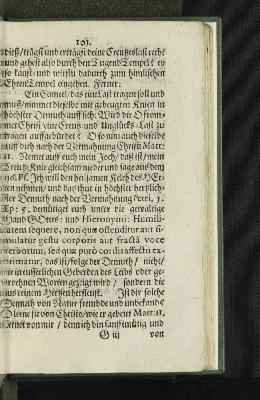 101.
dieß/trägst und erträgst deine Creutzeslast recht
gehest also durch den Tugend Tempel
so kanst und wirstu dadurch zum himlischen
Ehren Tempel eingehen. Ferner:
Ein Camel/das ein Last tragen soll und
muß/nimmet dieselbe mit gebeugten Knien in
höchster Demuth auff sich: Wird dir O from-
mer Christ eine Creutz und Unglücks-Last zu
tragen auffbürdet? O so nim auch dieselbe
auff dich nach der Vermahnung Christi Matt:
11. Nemet auff euch mein Joch/daß ist/mein
Creutz: Knie gleichsam nieder und sage aus dem
Ps. Ich will den heilsamen Kelch des HEr-
ren nehmen/ und das thue in höchster hertzlich-
ster Demuth nach der Vermahnung Petri, 1.
Ep: 5. demütiget euch unter die gewaltige
Hand GOttes: und Hieronymi: Humili-
tatem sequere, non quæ ostenditur aut si-
mulatur gestu corporis aut fractâ voce
verborum, sed quæ puro cordis affectu ex-
primatur, das ist/folge der Demuth/ nicht/
wie in eusserlichen Geberden des Leibs oder ge-
brochnen Worten gezeigt wird/ sondern die
aus reinem Hertzen herfleust. Ist dir solche
Demuth von Natur fremde und unbekande
O lerne sie von Christo/wie er gebeut Matt: 11.
Lernet von mir/ denn ich bin sanfftmütig und
G iij von